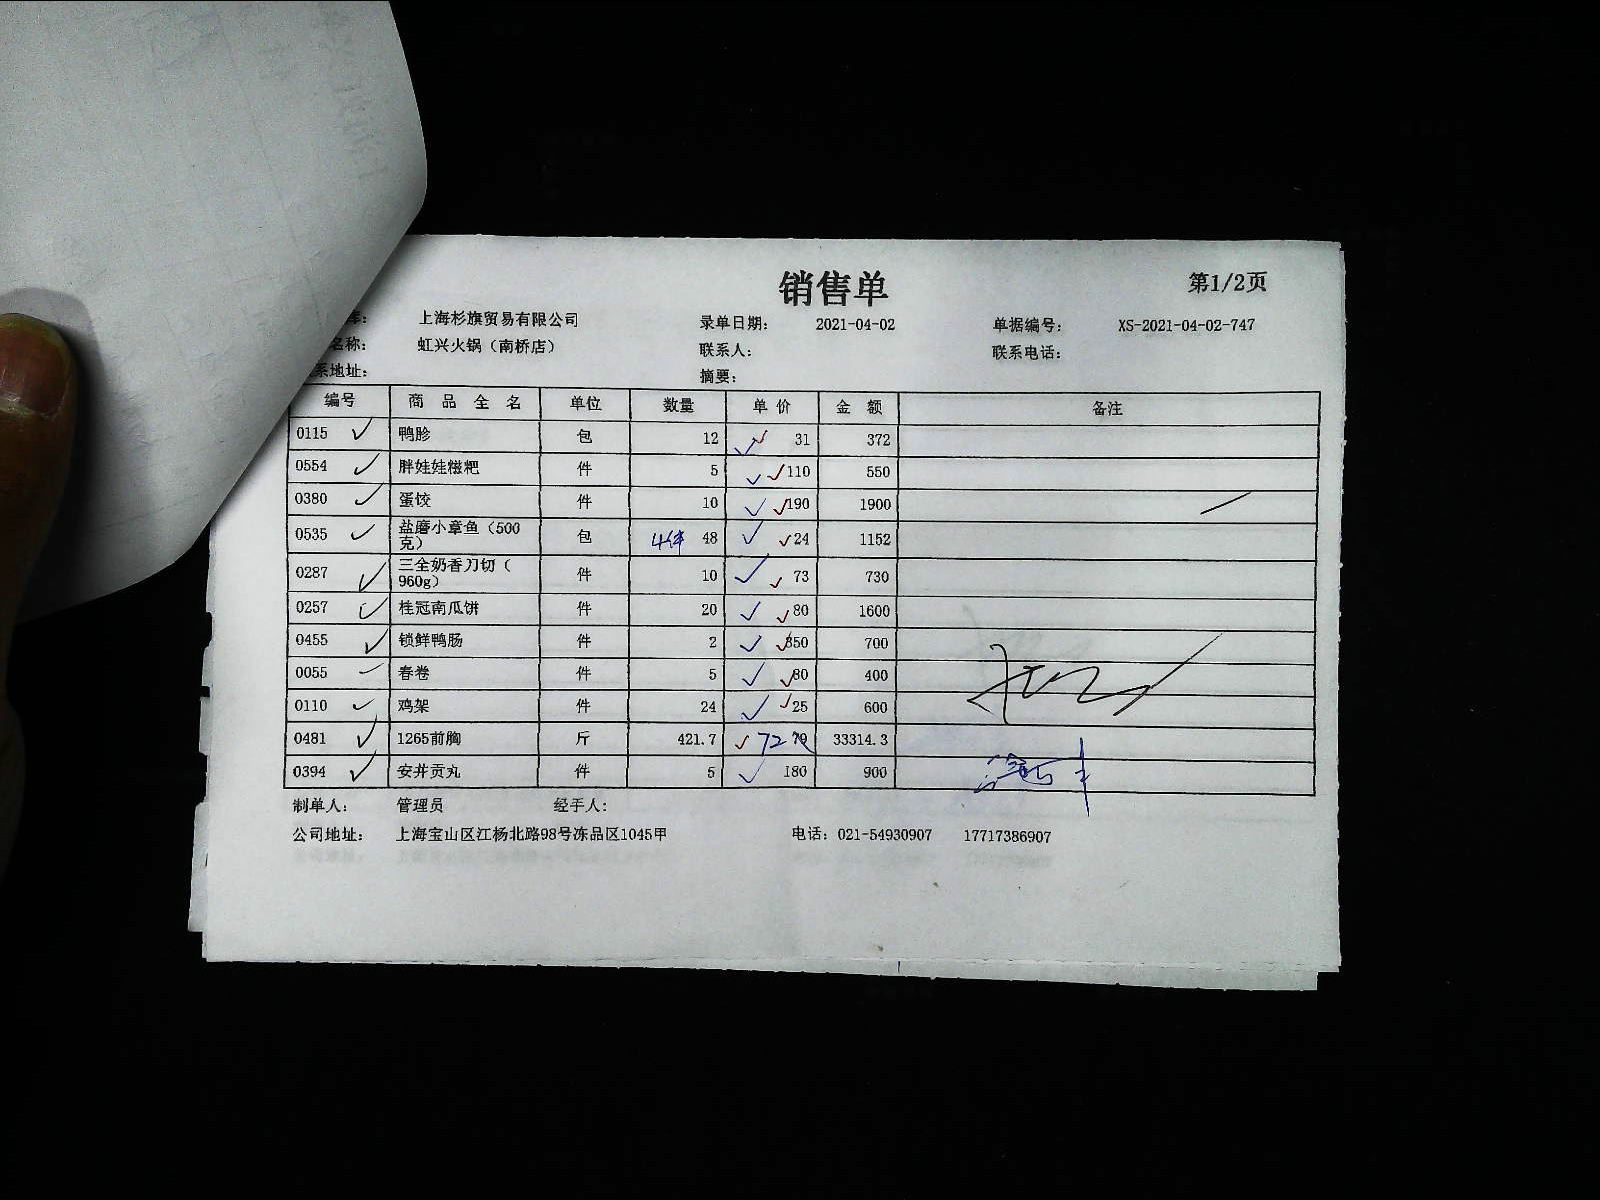 销售单
第1/2页
库: 上海杉旗贸易有限公司 录单日期: 2021-04-02 单据编号: XS-2021-04-02-747
名称: 虹兴火锅(南桥店) 联系人: 联系电话:
系地址: 摘要:
编号 商品全名 单位 数量 单价 金额 备注
0115 鸭胗 包 12 31 372
0554 胖娃娃糍粑 件 5 110 550
0380 蛋饺 件 10 190 1900
0535 盐磨小章鱼(500克) 包 4件 48 24 1152
0287 三全奶香刀切(960g) 件 10 73 730
0257 桂冠南瓜饼 件 20 80 1600
0455 锁鲜鸭肠 件 2 350 700
0055 春卷 件 5 80 400
0110 鸡架 件 24 25 600
0481 1265前胸 斤 421.7 72 79 33314.3
0394 安井贡丸 件 5 180 900
制单人: 管理员 经手人:
公司地址: 上海宝山区江杨北路98号冻品区1045甲 电话: 021-54930907 17717386907